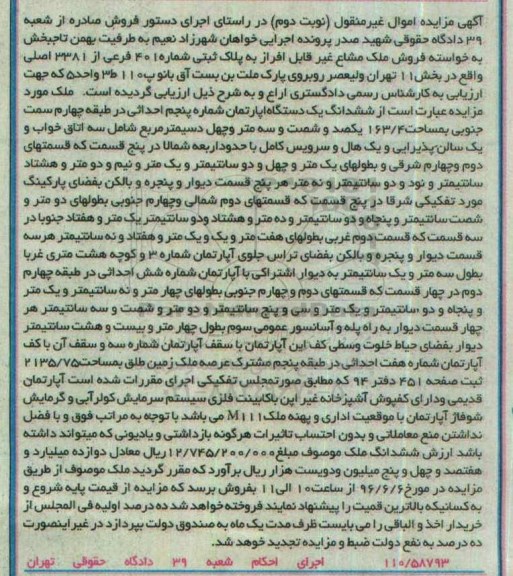 آگهی مزایده اموال غیرمنقول (نوبت دوم) در راستای اجرای دستور فروش صادره از شعبه
۳۹ دادگاه حقوقی شهید صدر پرونده اجرایی خواهان شهرزاد نعیم به طرفیت بهمن تاجبخش
به خواسته فروش ملک مشاع غیر قابل افراز به پلاک ثبتی شماره۴۰۱ فرعی از ۳۳۸۱ اصلی
واقع در بخش۱۱ تهران ولیعصر روبروی پارک ملت بن بست آق بانو پ۱۱۰ ط۳ واحد۵ که جهت
ارزیابی به کارشناس رسمی دادگستری اراع و به شرح ذیل ارزیابی گردیده است. ملک مورد
مزایده عبارت است از ششدانگ یک دستگاه اپارتمان شماره پنجم احداثی در طبقه چهارم سمت
جنوبی بمساحت۱۶۳/۴ یکصد و شصت و سه متر وچهل دسیمترمربع شامل سه اتاق خواب و
یک سالن پذیرایی و یک هال و سرویس کامل با حدوداربعه شمالا در پنج قسمت که قسمتهای
دوم وچهارم شرقی و بطولهای یک متر و چهل و دو سانتیمتر و یک متر و نیم و دو متر و هشتاد
سانتیمتر و نود و دو سانتیمتر و نه متر هر پنج قسمت دیوار و پنجره و بالکن بفضای پارکینگ
مورد تفکیکی شرقا در پنج قسمت که قسمتهای دوم شمالی وچهارم جنوبی بطولهای دو متر و
شصت سانتیمتر و پنجاه و دو سانتیمتر و ده متر و هشتاد ودو سانتیمتر یک متر و هفتاد جنوبا در
سه قسمت که قسمت دوم غربی بطولهای هفت متر و یک و یک متر و هفتاد و نه سانتیمتر هرسه
قسمت دیوار و پنجره و بالکن بفضای تراس جلوی آپارتمان شماره ۳ و کوچه هشت متری غربا
بطول سه متر و یک سانتیمتر به دیوار اشتراکی با آپارتمان شماره شش احداثی در طبقه چهارم
دوم در چهار قسمت که قسمتهای دوم و چهارم جنوبی بطولهای چهار متر و نه سانتیمتر و یک متر
و پنجاه و دو سانتیمتر و یک متر و سی و پنج سانتیمتر و دو متر و شصت و سه سانتیمتر هر
چهار قسمت دیوار به راه پله و آسانسور عمومی سوم بطول چهار متر و بیست و هشت سانتیمتر
دیوار بفضای حیاط خلوت وسطی کف این آپارتمان با سقف آپارتمان شماره سه و سقف آن با کف
آپارتمان شماره هفت احداثی در طبقه پنجم مشترک عرصه ملک زمین طلق بمساحت۲۱۳۵/۷۵
ثبت صفحه ۴۵۱ دفتر ۹۴ که مطابق صورتمجلس تفکیکی اجرای مقررات شده است آپارتمان
قدیمی ودارای کفپوش آشپزخانه غیر اپن باکابینت فلزی سیستم سرمایش کولرآبی و گرمایش
شوفاژ آپارتمان با موقعیت اداری و پهنه ملکM۱۱۱ می باشد با توجه به مراتب فوق و با فضل
نداشتن منع معاملاتی و بدون احتساب تاثیرات هرگونه بازداشتی و یادیونی که میتواند داشته
باشد ارزش ششدانگ ملک موصوف مبلغ۱۲/۷۴۵/۲۰۰/۰۰۰ریال معادل دوازده میلیارد و
هفتصد و چهل و پنج میلیون ودویست هزار ریال برآورد که مقرر گردید ملک موصوف از طریق
مزایده در مورخ۹۶/۶/۶ از ساعت۱۰ الی۱۱ بفروش برسد که مزایده از قیمت پایه شروع و
به کسانیکه بالاترین قیمت را پیشنهاد نمایند فروخته خواهد شد ده درصد اولیه فی المجلس از
خریدار اخذ و الباقی را می بایست ظرف مدت یک ماه به صندوق دولت بپردازد در غیر اینصورت
ده درصد به نفع دولت ضبط و مزایده تجدید خواهد شد.
۱۱۰/۵۸۷۹۳ اجرای احکام شعبه ۳۹ دادگاه حقوقی تهران